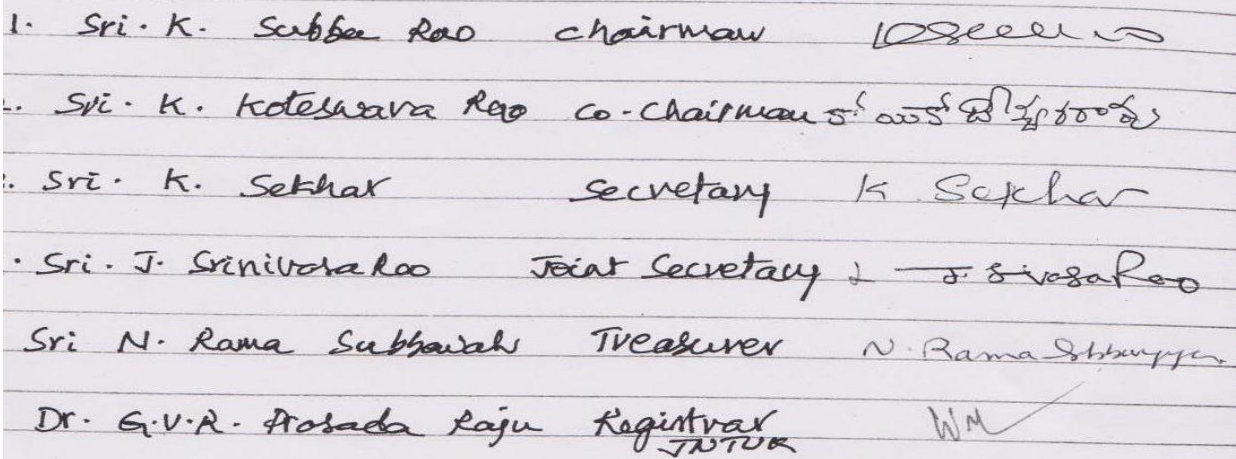 1. Sri. K. Subba Rao chairman
. Sri. K. Koteswara Rao Co-Chairman
. Sri. K. Sekhar Secretary K Sekhar
. Sri. J. Srinivasa Rao Joint Secretary
Sri N. Rama Subbaiah Treasurer N. Rama
Dr. G.V.R. Prasada Raju Registrar
JNTUK